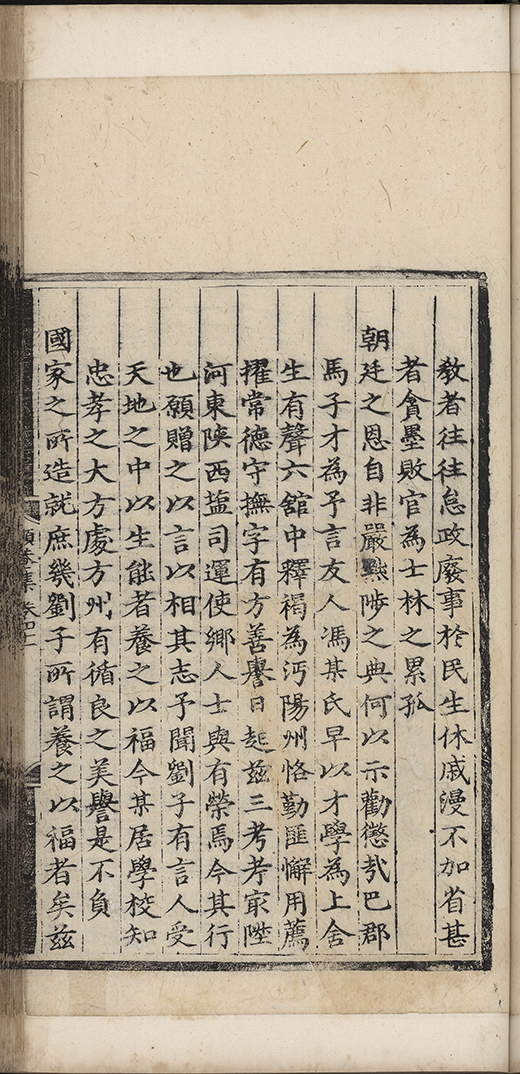 敎者往往怠政廢事於民生休戚漫不加省甚
者貪墨敗官為士林之累孤
朝廷之恩自非嚴黜陟之典何以示勸懲㢤巴郡
馬子才為予言友人馮某氏早以才學為上舍
生有聲六館中釋褐為沔陽州恪勤匪懈用薦
擢常德守撫字有方善譽日起兹三考考㝡陞
河東陝西塩司運使鄉人士與有榮焉今其行
也願贈之以言以相其志予聞劉子有言人受
天地之中以生能者養之以福今某居學校知
忠孝之大方處方州有循良之美譽是不負
國家之所造就庶幾劉子所謂養之以福者矣兹
頤菴集 卷四